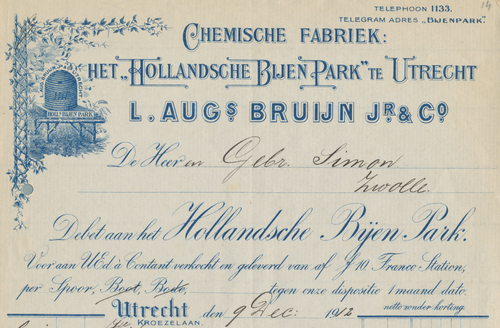 TELEPHOON 1133.
14
TELEGRAM ADRES „BIJENPARK".
CHEMISCHE FABRIEK:
HET „HOLLANDSCHE BIJEN PARK" TE UTRECHT
L. AUGS BRUIJN JR & CO
HOLLS BIJEN PARK
De Heeren Gebr. Simon
Zwolle.
Debet aan het Hollandsche Bijen Park.
Voor aan UEd. à Contant verkocht en geleverd van af f 10. Franco-Station,
per Spoor, Boot, Bode, tegen onze dispositie 1 maand dato.
Utrecht den 9 Dec: 1912 netto zonder korting.
KROEZELAAN.